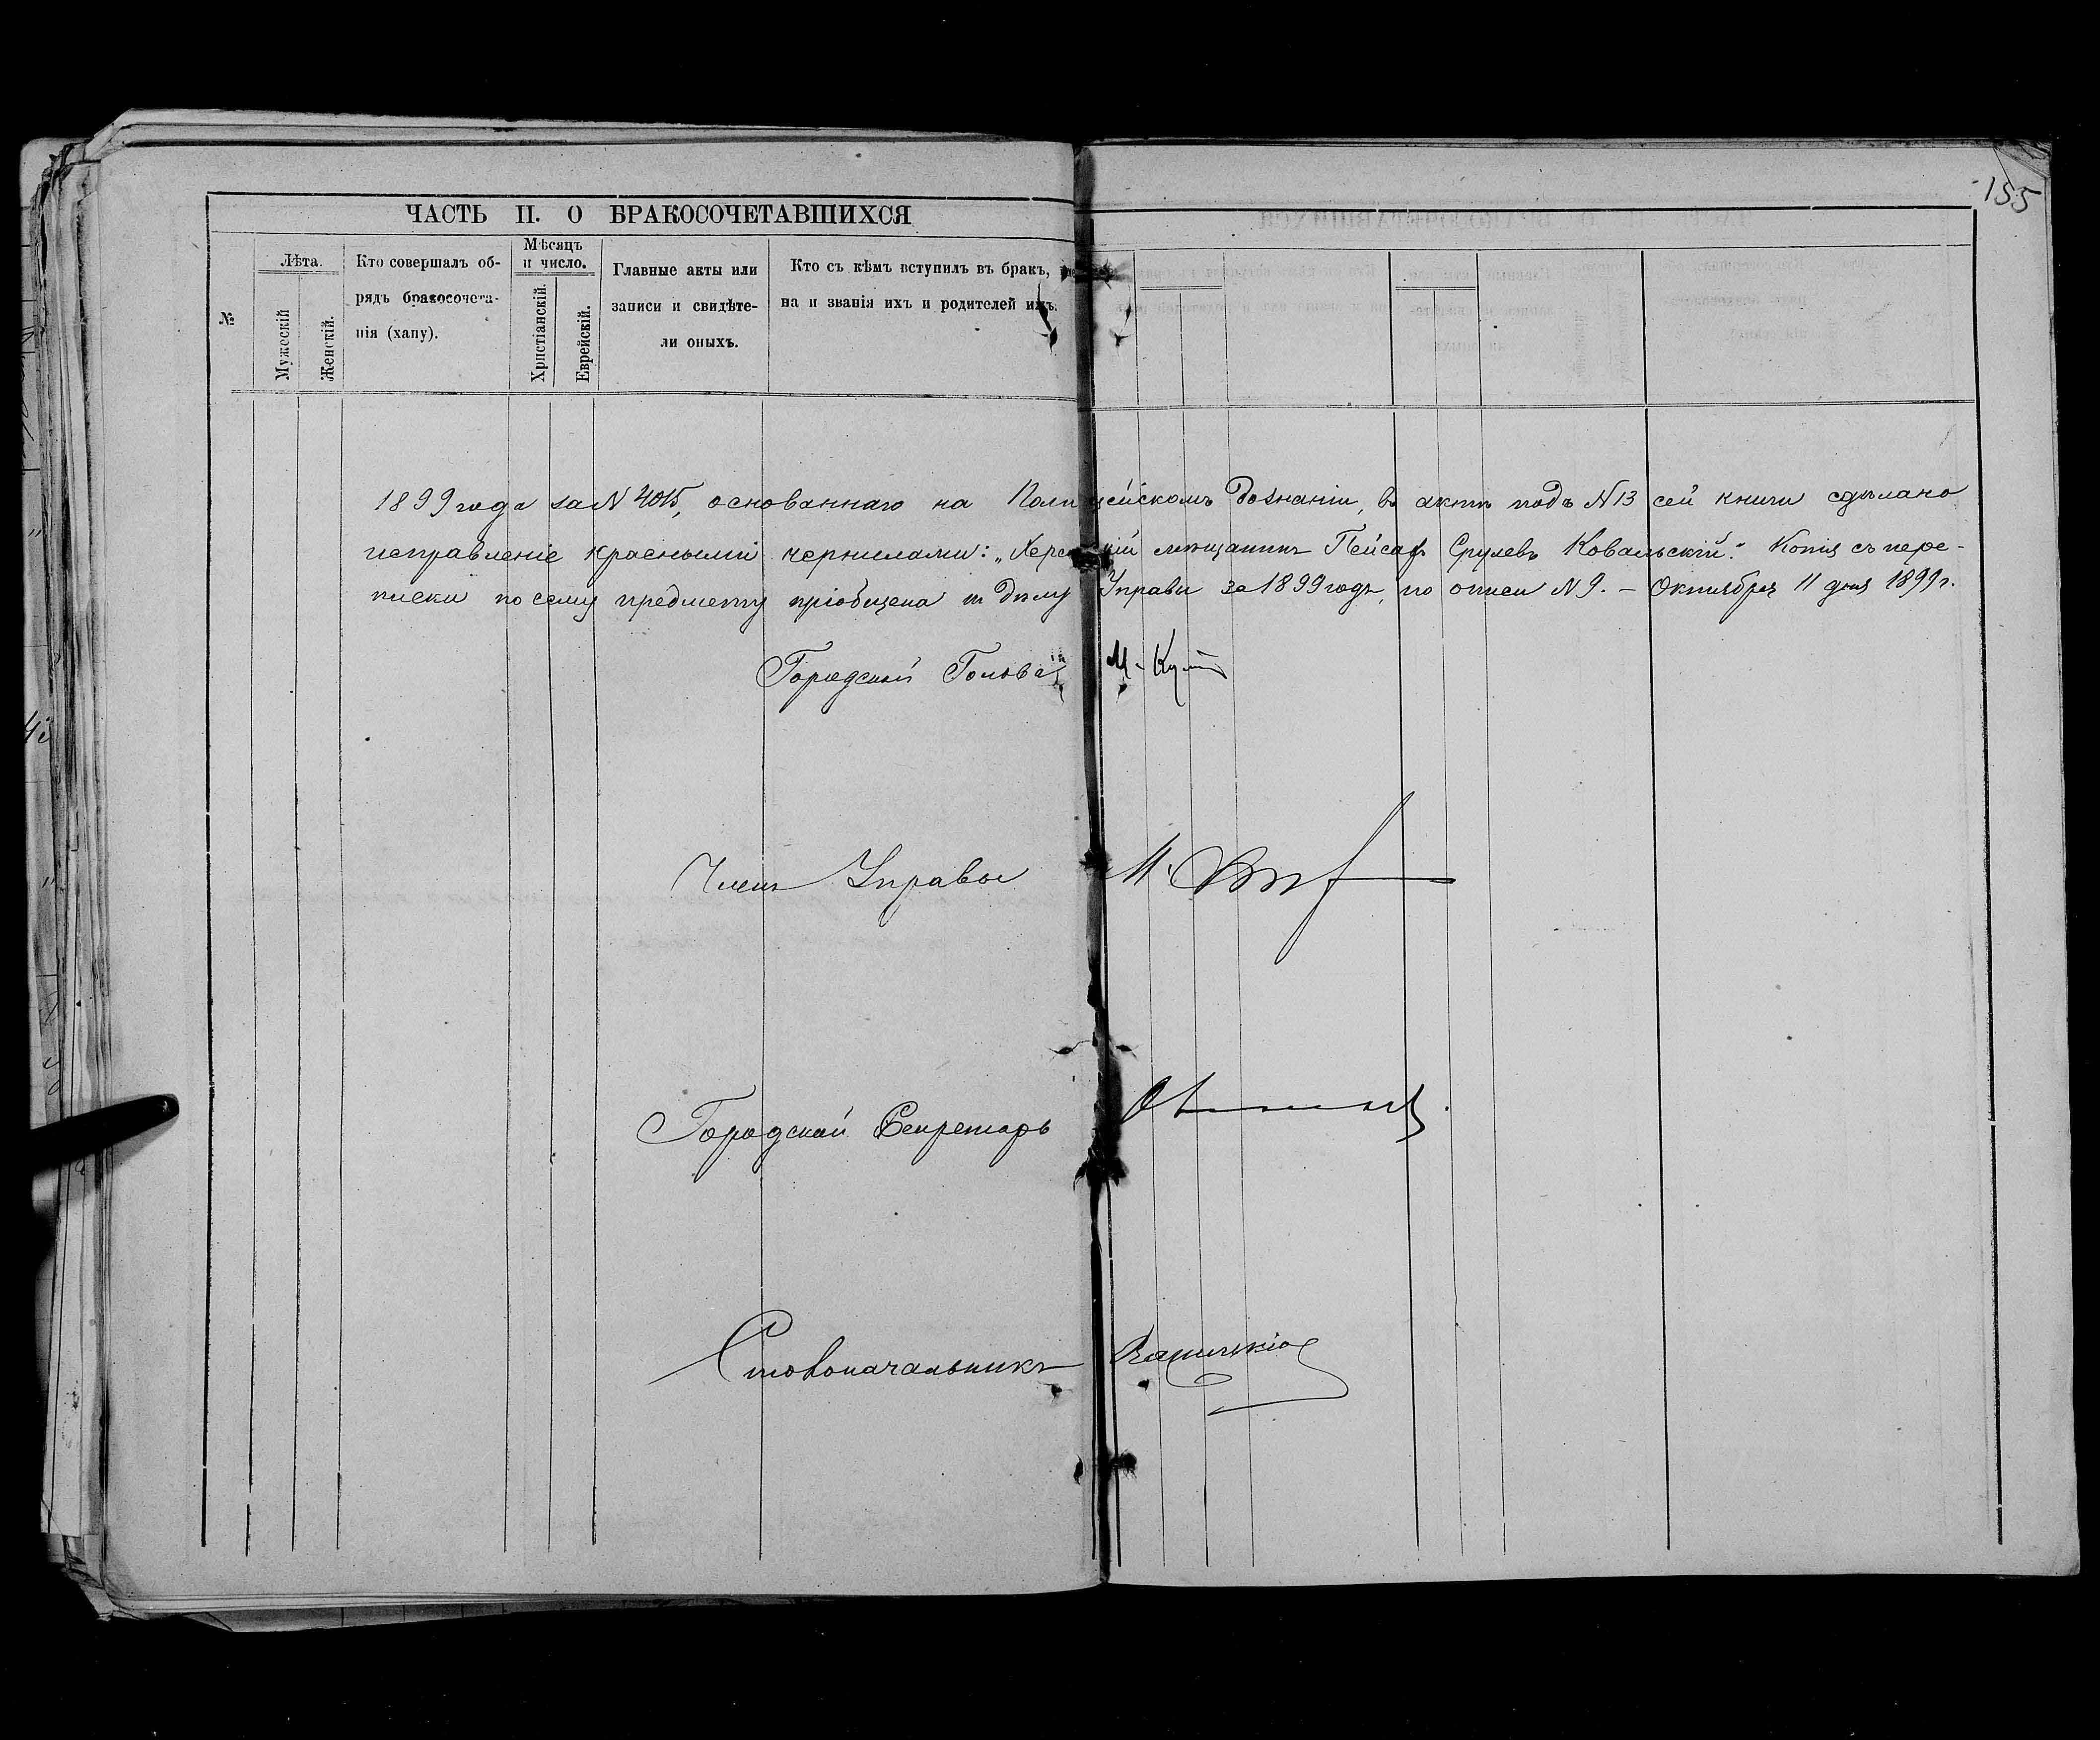 155
ЧАСТЬ II. О БРАКОСОЧЕТАВШИХСЯ
№
Лѣта.
Мужескій
Женскій.
Кто совершалъ об-
рядъ бракосочета-
нія (хапу).
Мѣсяцъ
и число.
Христіанскій.
Еврейскій.
Главные акты или
записи и свидѣте-
ли оныхъ.
Кто съ кѣмъ вступилъ въ бракъ,
на и званія ихъ и родителей ихъ.
1899 года за N 4015, основаннаго на Полицейскомъ дознаніи, въ актѣ подъ N 13 сей книги сдѣлано
исправленіе красными чернилами: „Херсонскій мѣщанинъ Пейсахъ Срулевъ Ковальскій." Копія съ пере-
писки по сему предмету пріобщена къ дѣлу Управы за 1899 годъ, по описи N 9. – Октября 11 дня 1899 г.
Городской Голова М.
Членъ Управы М.
Городской Секретарь
Столоначальникъ